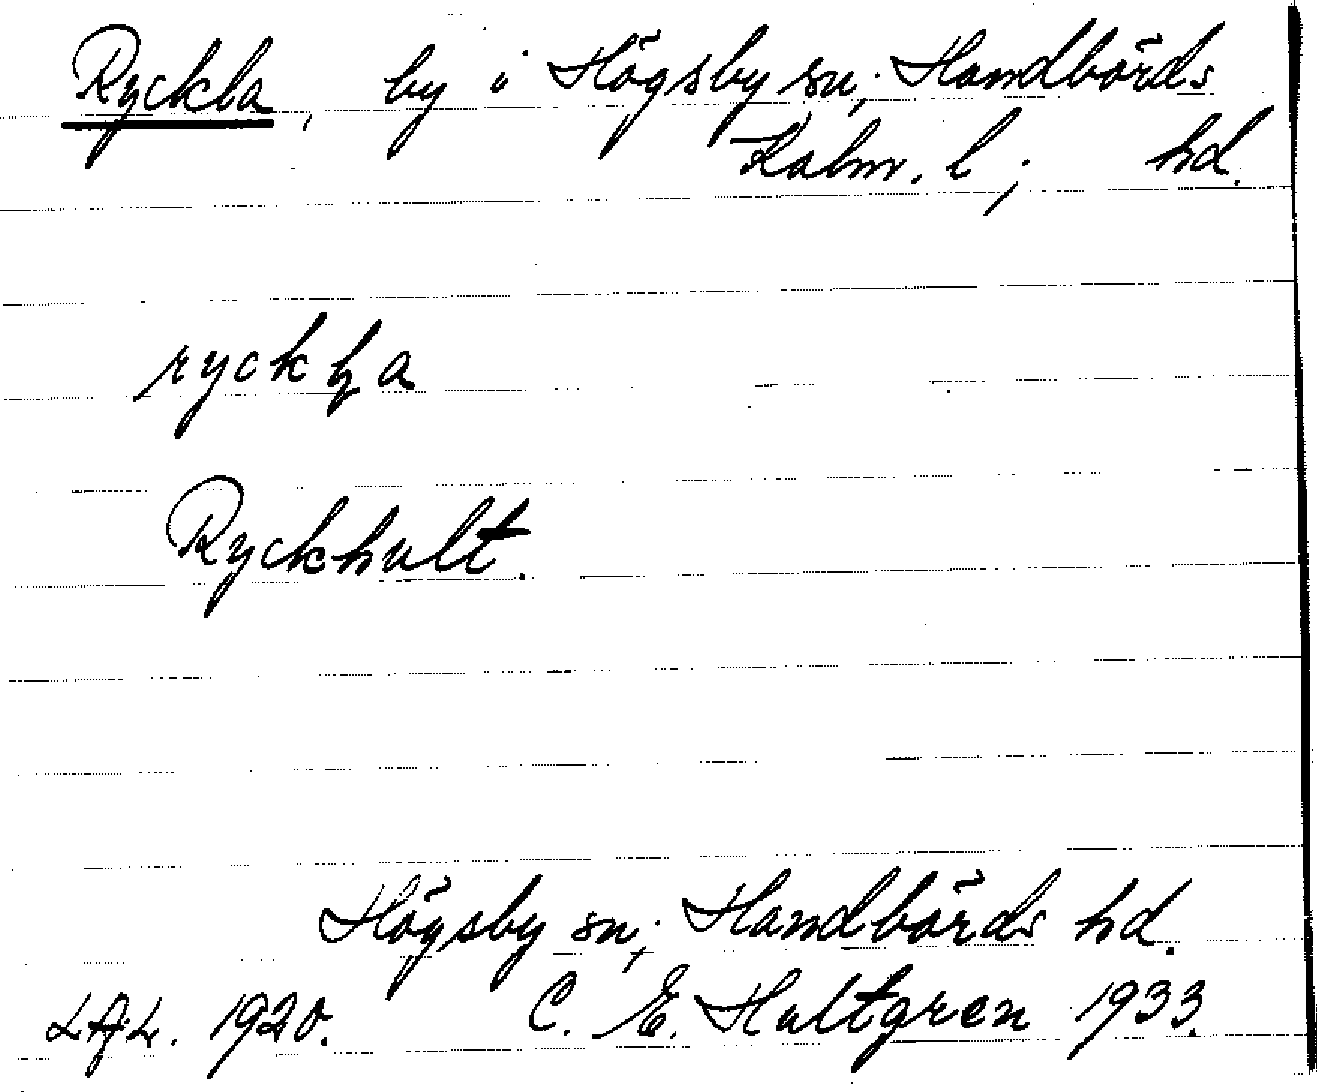 Ryckla, by i Högsby sn; Handbörds
Kalm. l; hd.
ryckɬa
Ryckhult.
Högsby sn; Handbörds hd.
1920. C. E. Hultgren 1933.